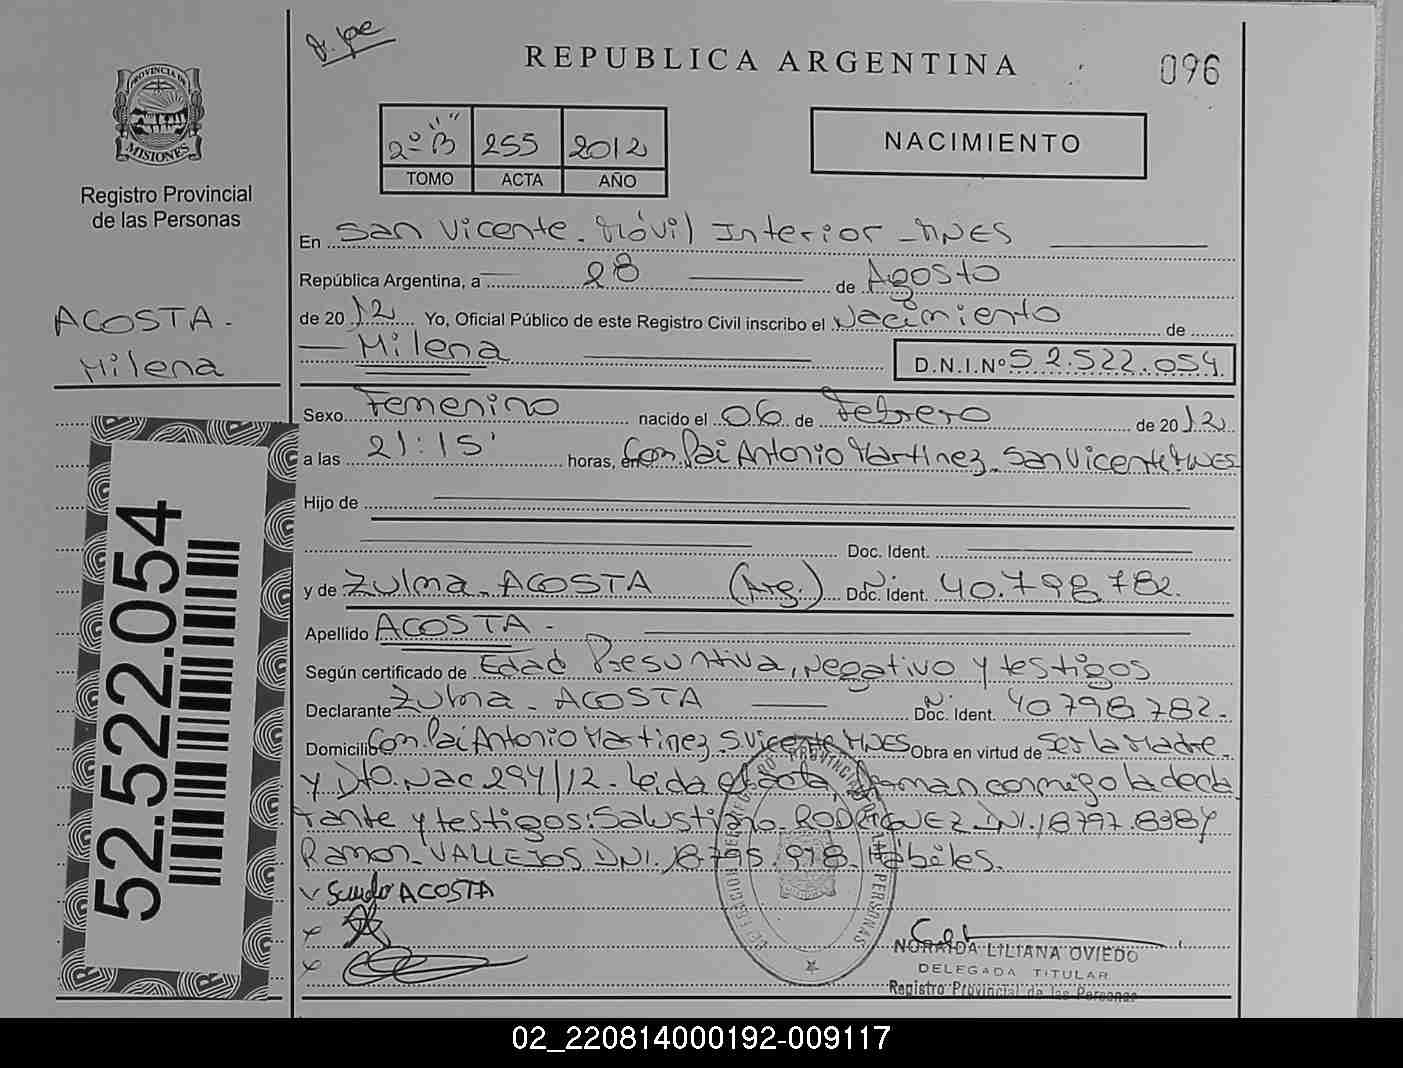 REPUBLICA ARGENTINA
096
PROVINCIA DE
MISIONES
Registro Provincial
de las Personas
2º "B" 255 2012
TOMO ACTA AÑO
NACIMIENTO
En San Vicente - Móvil Interior - MNES
República Argentina, a 28 de Agosto
de 2012 Yo, Oficial Público de este Registro Civil inscribo el Nacimiento de
Milena D.N.I.Nº 52.522.054
ACOSTA -
Milena
Sexo Femenino nacido el 06 de Febrero de 2012
a las 21:15' horas, en Com. Pai Antonio Martinez - San Vicente MNES
Hijo de
Doc. Ident.
y de Zulma - ACOSTA (Arg.) Doc. Ident. Nº 40.798.782.
Apellido ACOSTA -
Según certificado de Edad Presuntiva, negativo y testigos
Declarante Zulma - ACOSTA Doc. Ident. Nº 40798782.
Domicilio Com. Pai Antonio Martinez S. Vicente MNES Obra en virtud de Ser la Madre
y Dto. Nac 294/12. Leida el acta, firman conmigo la decla
rante y testigos: Salustiano RODRIGUEZ DNI. 18797.838 y
Ramon - VALLEJOS DNI. 18.795.978 Hábiles.
ACOSTA
52.522.054
NORAIDA LILIANA OVIEDO
DELEGADA TITULAR
Registro Provincial de las Personas
02_220814000192-009117